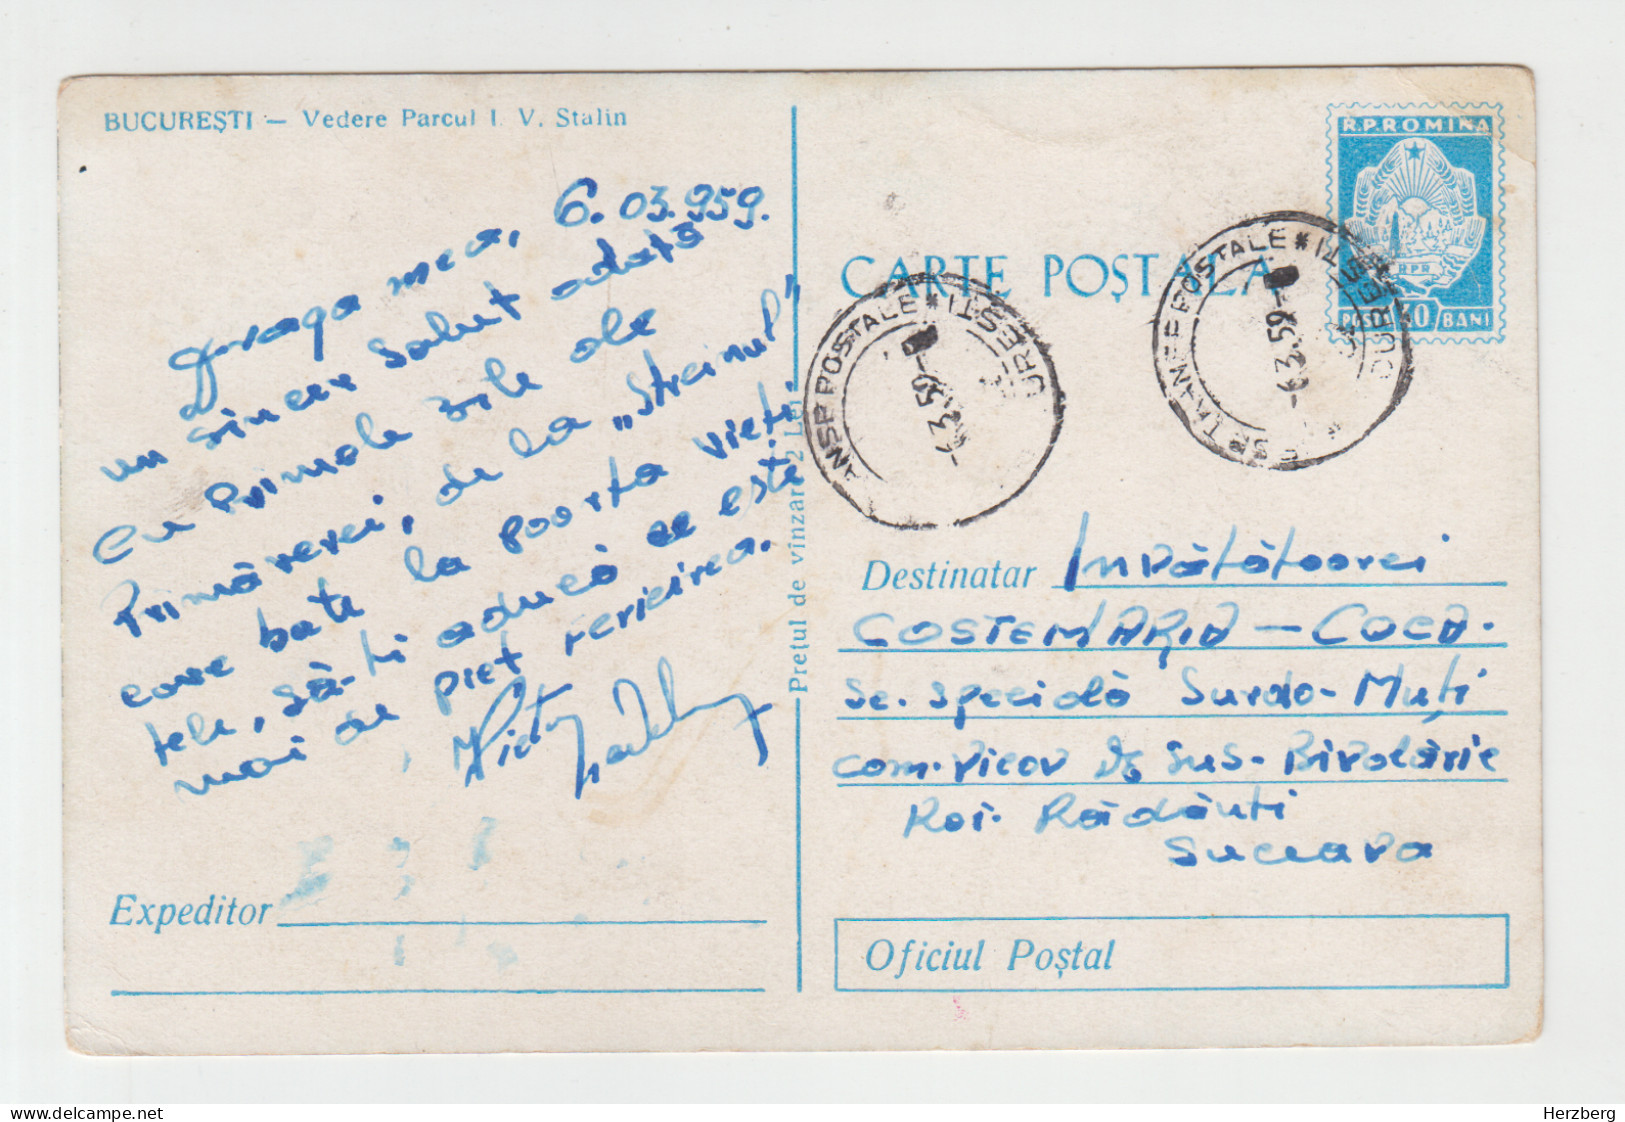 BUCUREȘTI — Vedere Parcul I. V. Stalin
6.03.959.
Draga mea,
un sincer salut odată
cu primele zile ale
Primăverei, de la „Streinul"
care bate la poarta vieți
tele, să-ți aducă ce este
mai de preț fericirea.
Expeditor
Prețul de vînzare 2 Lei
R.P.ROMINA
RPR
POSTA 40 BANI
CARTE POȘTALA
TRANSP. POSTALE * BUCURESTI
-6.3.59-
TRANSP. POSTALE * BUCURESTI
-6.3.59-
Destinatar Invățătoarei
COSTEMARIA - COCA.
Sc. Specială Surdo-Muți
com. Vicov D, Sus - Bivolărie
Rai. Rădăuți
Suceava
Oficiul Poștal
Herzberg